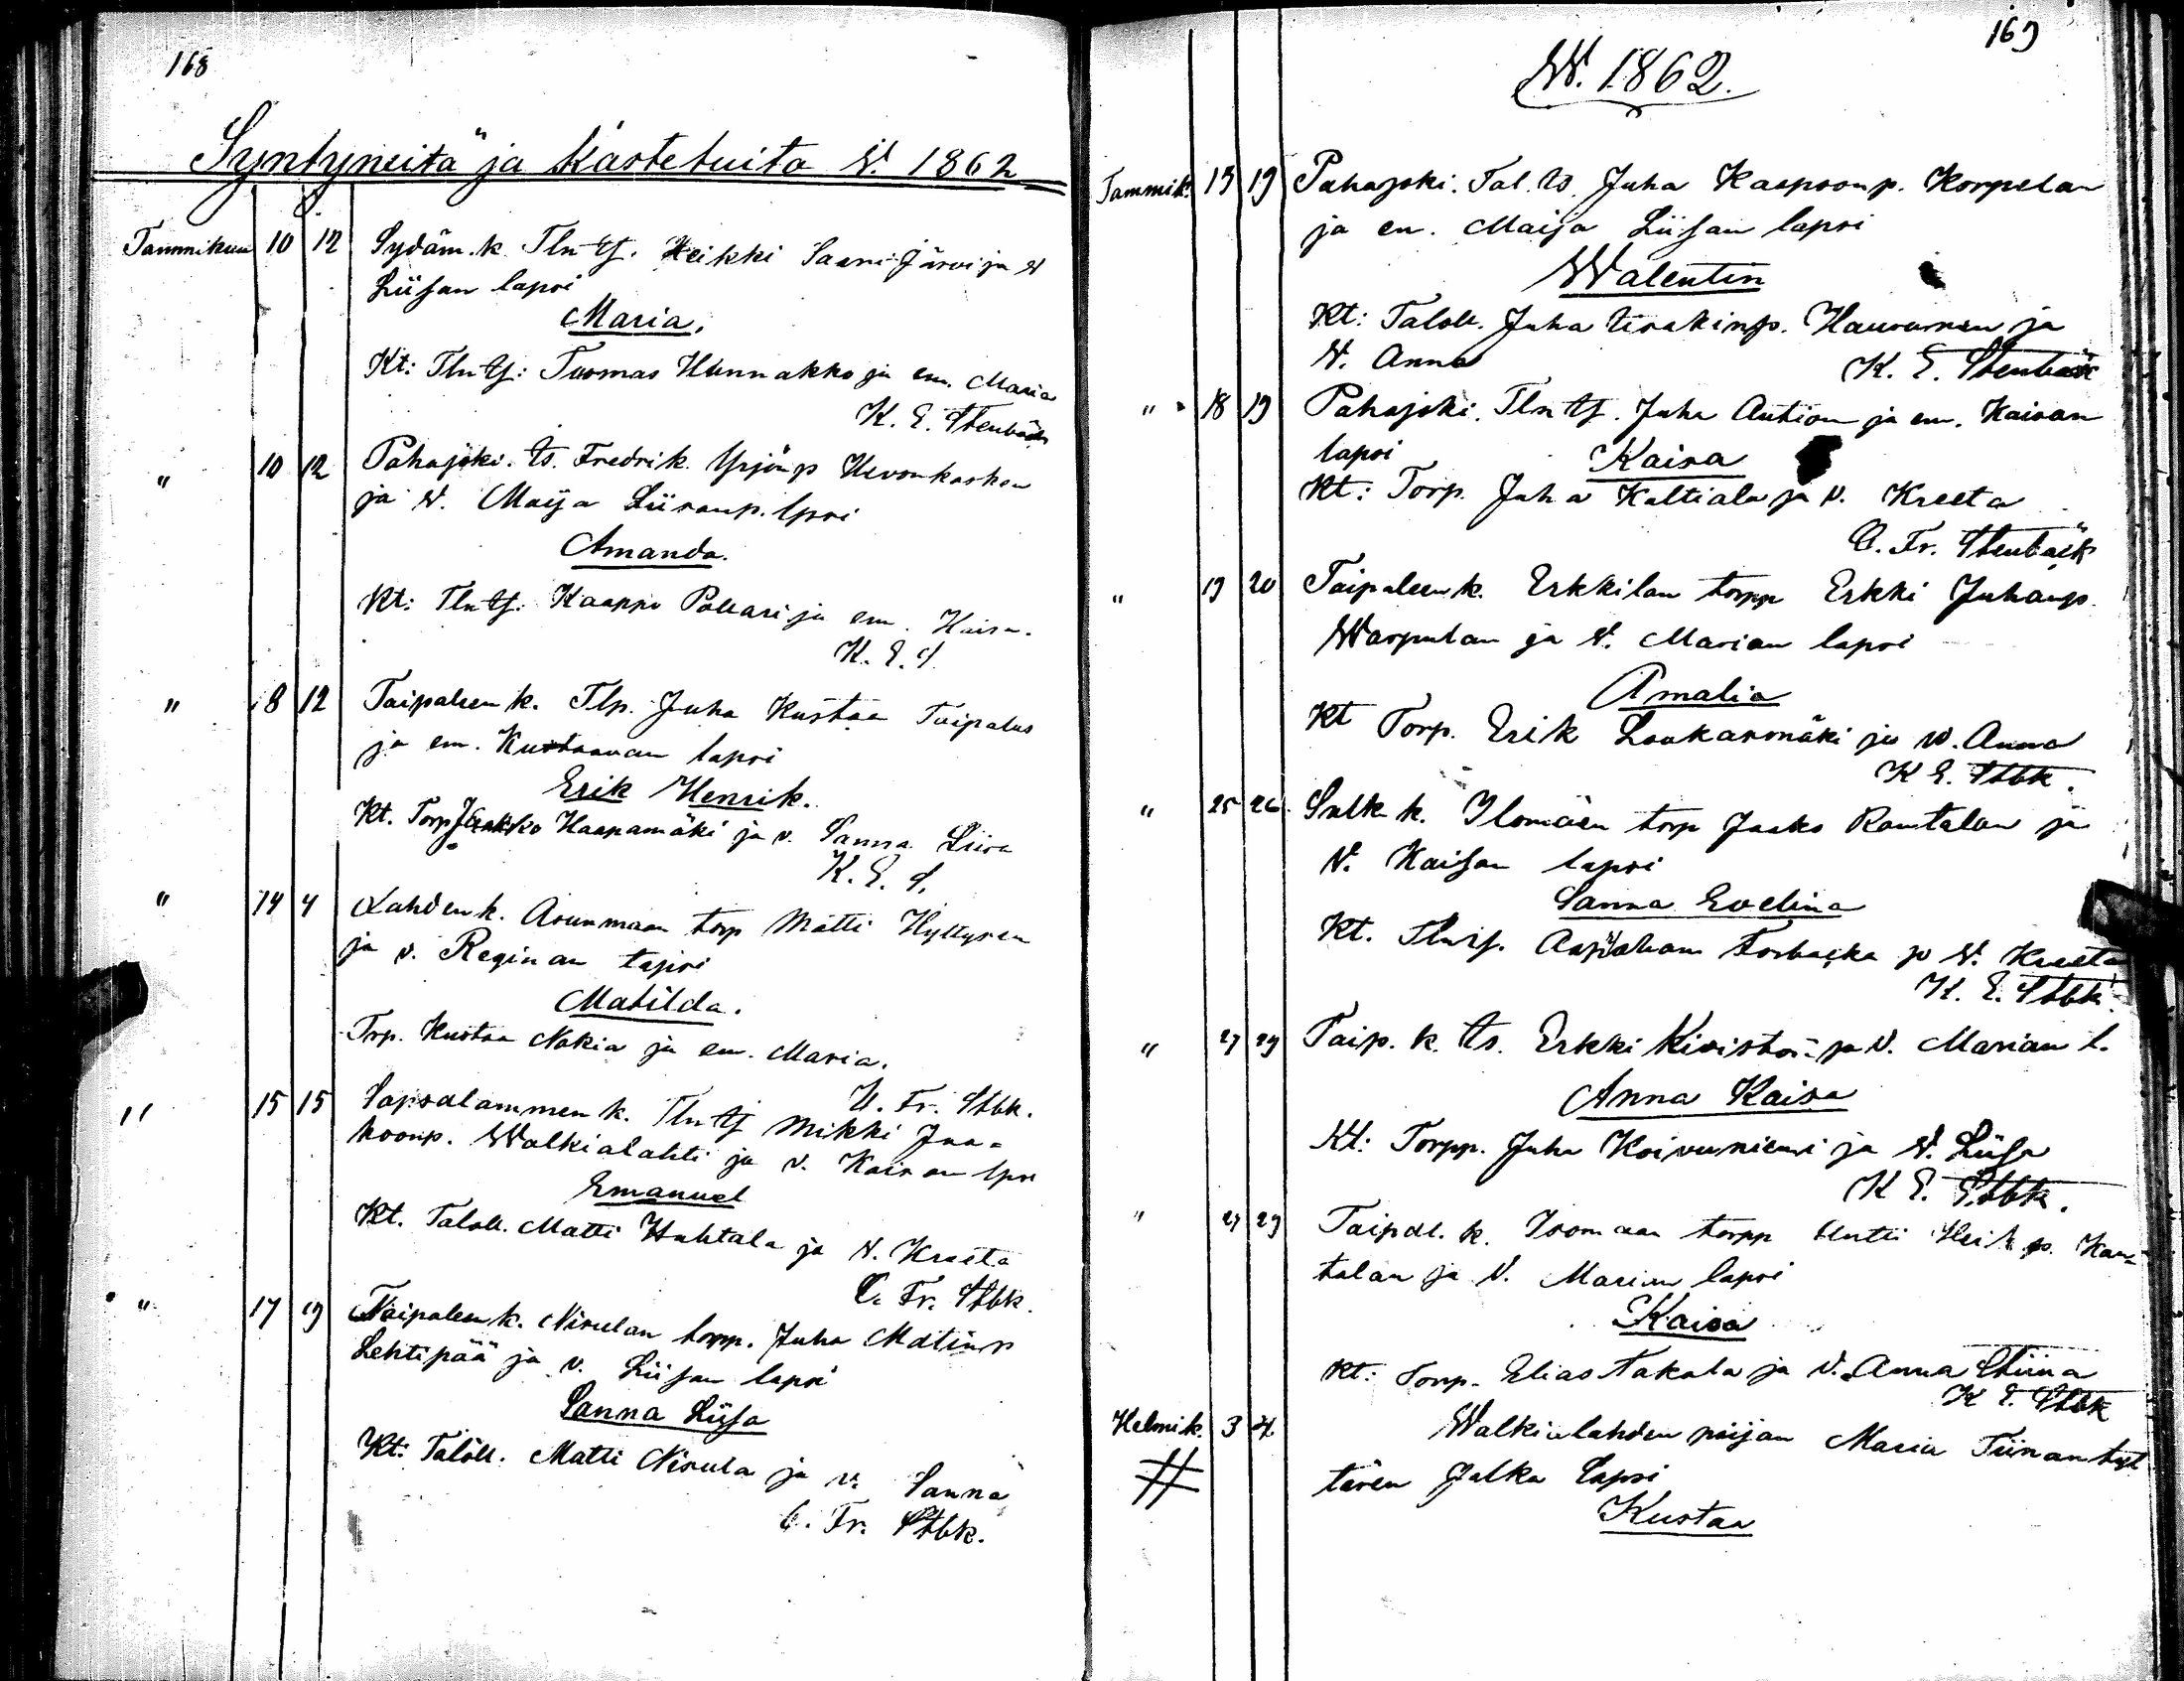 168
Syntyneitä ja kastetuita W. 1862
Tammikuu 10 12 Sydäm. k. Tln tj. Heikki Saarijärvi ja W
Liisan lapsi
Maria.
Kt: Tln tj: Tuomas Hunnakko ja em. Maria
K. E. Stenbäck
" 10 12 Pahajoki. ts. Fredrik Yrjönp Hevonkosken
ja W. Maija Liisanp. lpsi
Amanda.
Kt: Tln tj. Kaappo Pollari ja em. Kaisa.
K. E. S.
" 8 12 Taipaleen k. Tlp. Juha Kustaa Taipalus
ja em. Kustaavan lapsi
Erik Henrik.
Kt. Torp Jaakko Haapamäki ja v. Sanna Liisa
K. E. S.
" 14 4 Lahden k. Asunmaan torp Matti Hyttysen
ja v. Reginan lapsi
Matilda.
Trp. Kustaa Nokia ja em. Maria.
Fr. Stbk.
" 15 15 Sapsalammen k. Tln tj Mikki Jaa-
koonp. Walkialahti ja v. Kaisan lpsi
Emanuel
Kt. Taloll. Matti Huhtala ja W. Kreeta
C. Fr. Stbk.
" 17 19 Taipaleen k. Nisulan torpp. Juha Matinp
Lehtipää ja v. Liisan lapsi
Sanna Liisa
Kt: Taloll. Matti Nisula ja v. Sanna
C. Fr. Stbk.
169
W. 1862.
Tammik. 15 19 Pahajoki. Tal. ts. Juha Kaapoonp. Korpelan
ja em. Maija Liisan lapsi
Walentin
Kt: Taloll. Juha Iisakinp. Haurunen ja
W. Anna K. E. Stenbäck
" 18 19 Pahajoki. Tln tj. Juha Aution ja em. Kaisan
lapsi Kaisa
Kt: Torp. Juha Kaltiala ja v. Kreeta
C. Fr. Stenbäck
" 19 20 Taipaleen k. Erkkilan torpp Erkki Juhanp.
Warpulan ja W. Marian lapsi
Amalia
Kt Torp. Erik Loukasmäki ja w. Anna
K E. Stbk.
" 25 26 Salk k. Ilomäen torp Jaako Rantalan ja
W. Kaisan lapsi
Sanna Evelina
Kt. Aapraham Forbacka ja W. Kreeta
K. E. Stbk.
" 27 29 Taip. k. ts. Erkki Kivistön ja W. Marian l.
Anna Kaisa
Kt: Torpp. Juha Koivuniemi ja W. Liisa
K E. Stbk.
" 27 29 Taipal. k. Isomaan torpp Antti Heik p. Kan-
talan ja W. Marian lapsi
Kaisa
Kt: Torp. Elias Takala ja W. Anna Stiina
K E. Stbk
Helmik. 3 4 Walkialahden piijan Maria Tiinan tyt
tären Jalka lapsi
Kustaa